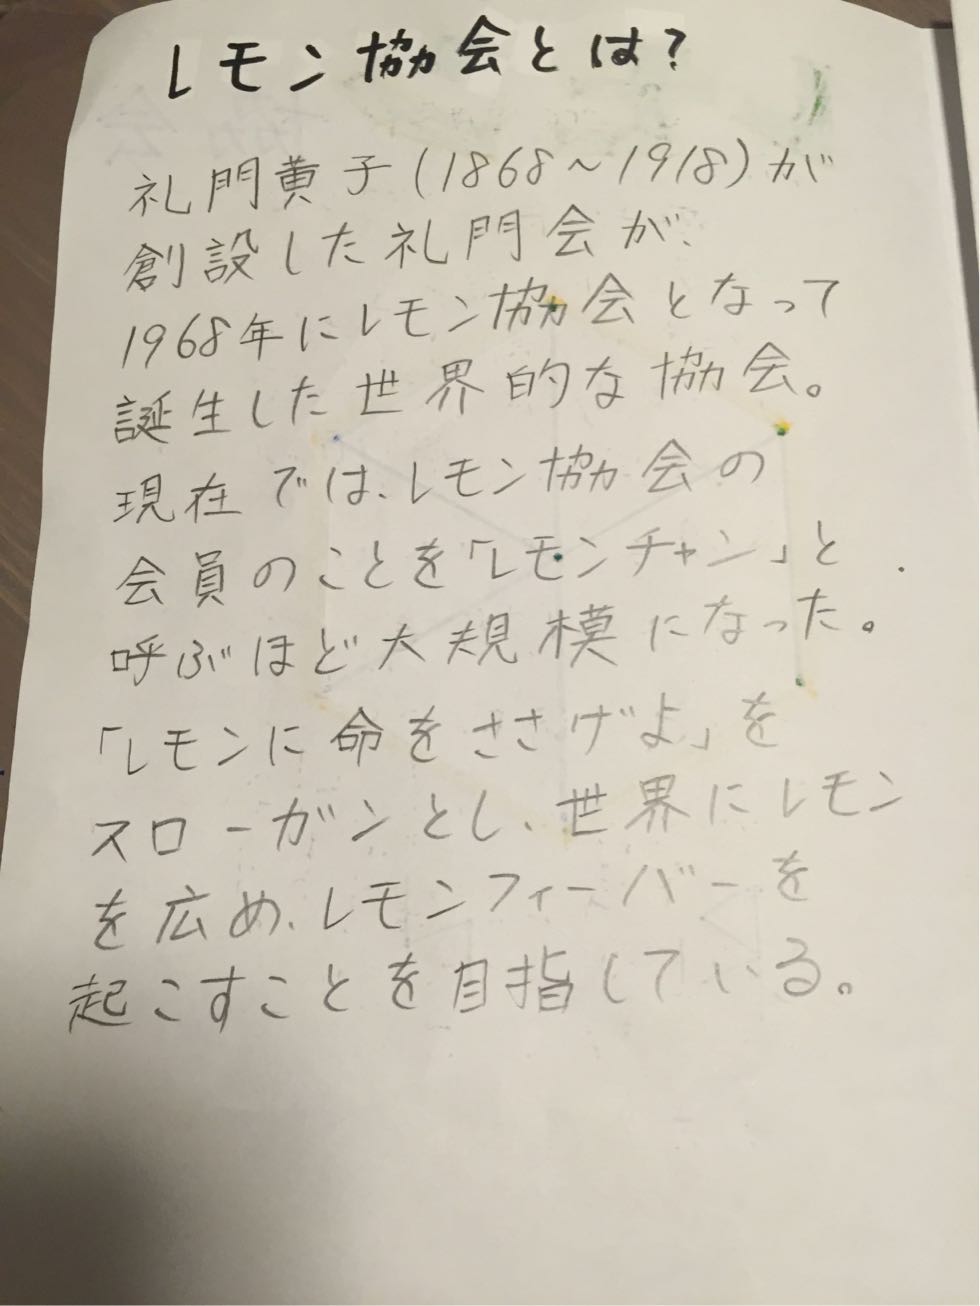 レモン協会とは?
礼門黄子(1868～1918)が
創設した礼門会が、
1968年にレモン協会となって
誕生した世界的な協会。
現在では、レモン協会の
会員のことを「レモンチャン」と
呼ぶほど大規模になった。
「レモンに命をささげよ」を
スローガンとし、世界にレモン
を広め、レモンフィーバーを
起こすことを目指している。